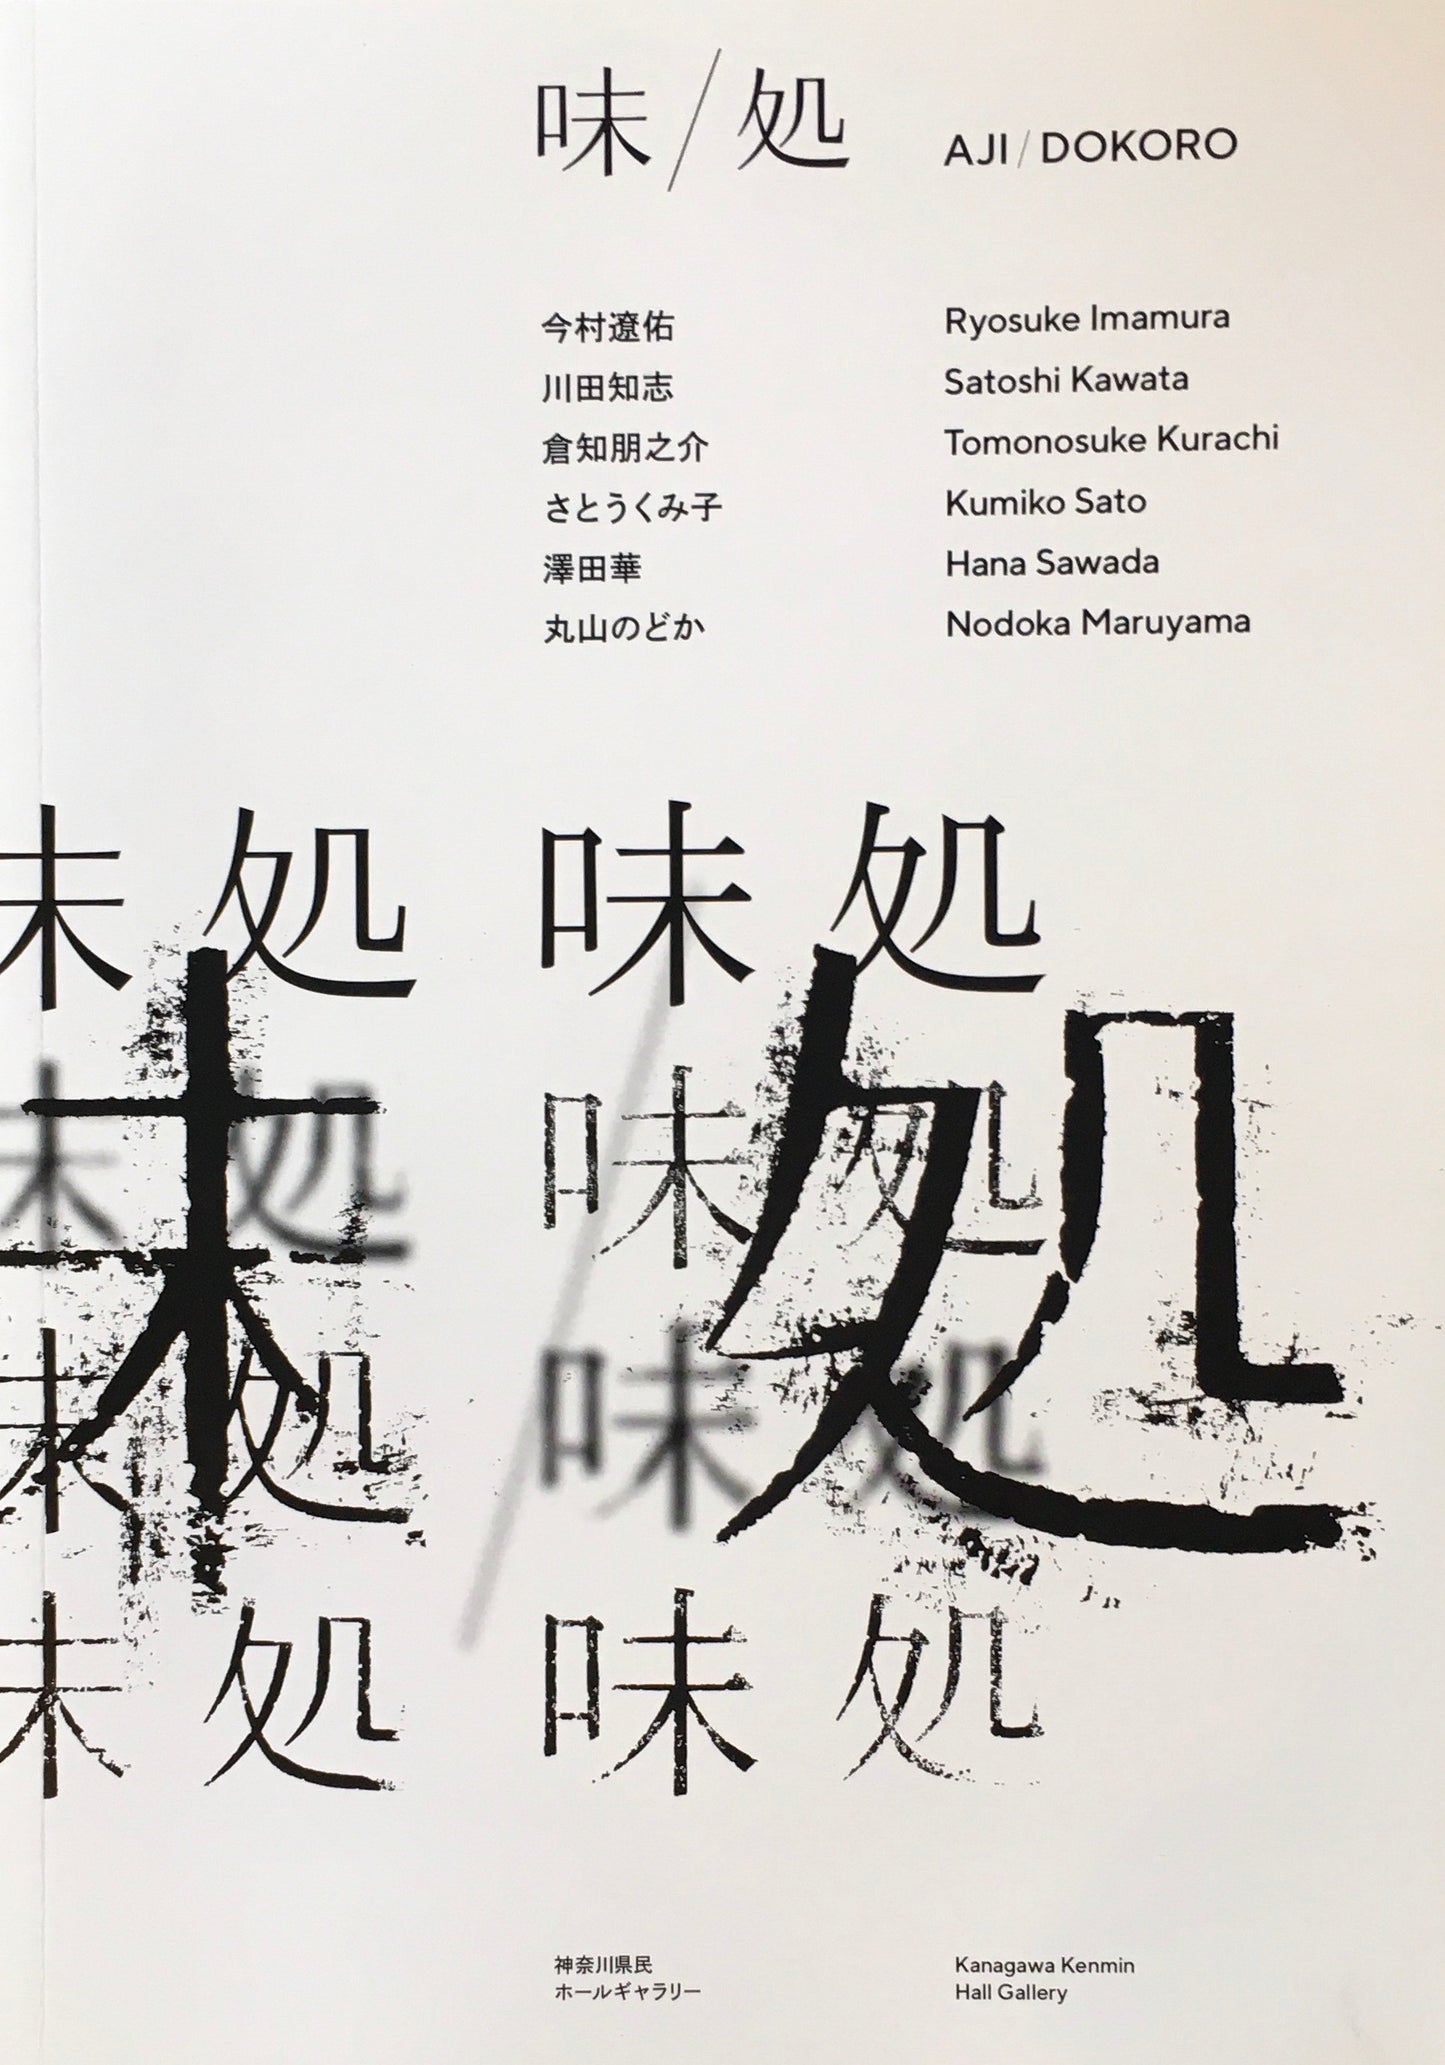 味/処 AJI/DOKORO
今村遼佑 Ryosuke Imamura
川田知志 Satoshi Kawata
倉知朋之介 Tomonosuke Kurachi
さとうくみ子 Kumiko Sato
澤田華 Hana Sawada
丸山のどか Nodoka Maruyama
味処 味処
味処
味処 味処
味処 味処
味処 味処
神奈川県民 Kanagawa Kenmin
ホールギャラリー Hall Gallery